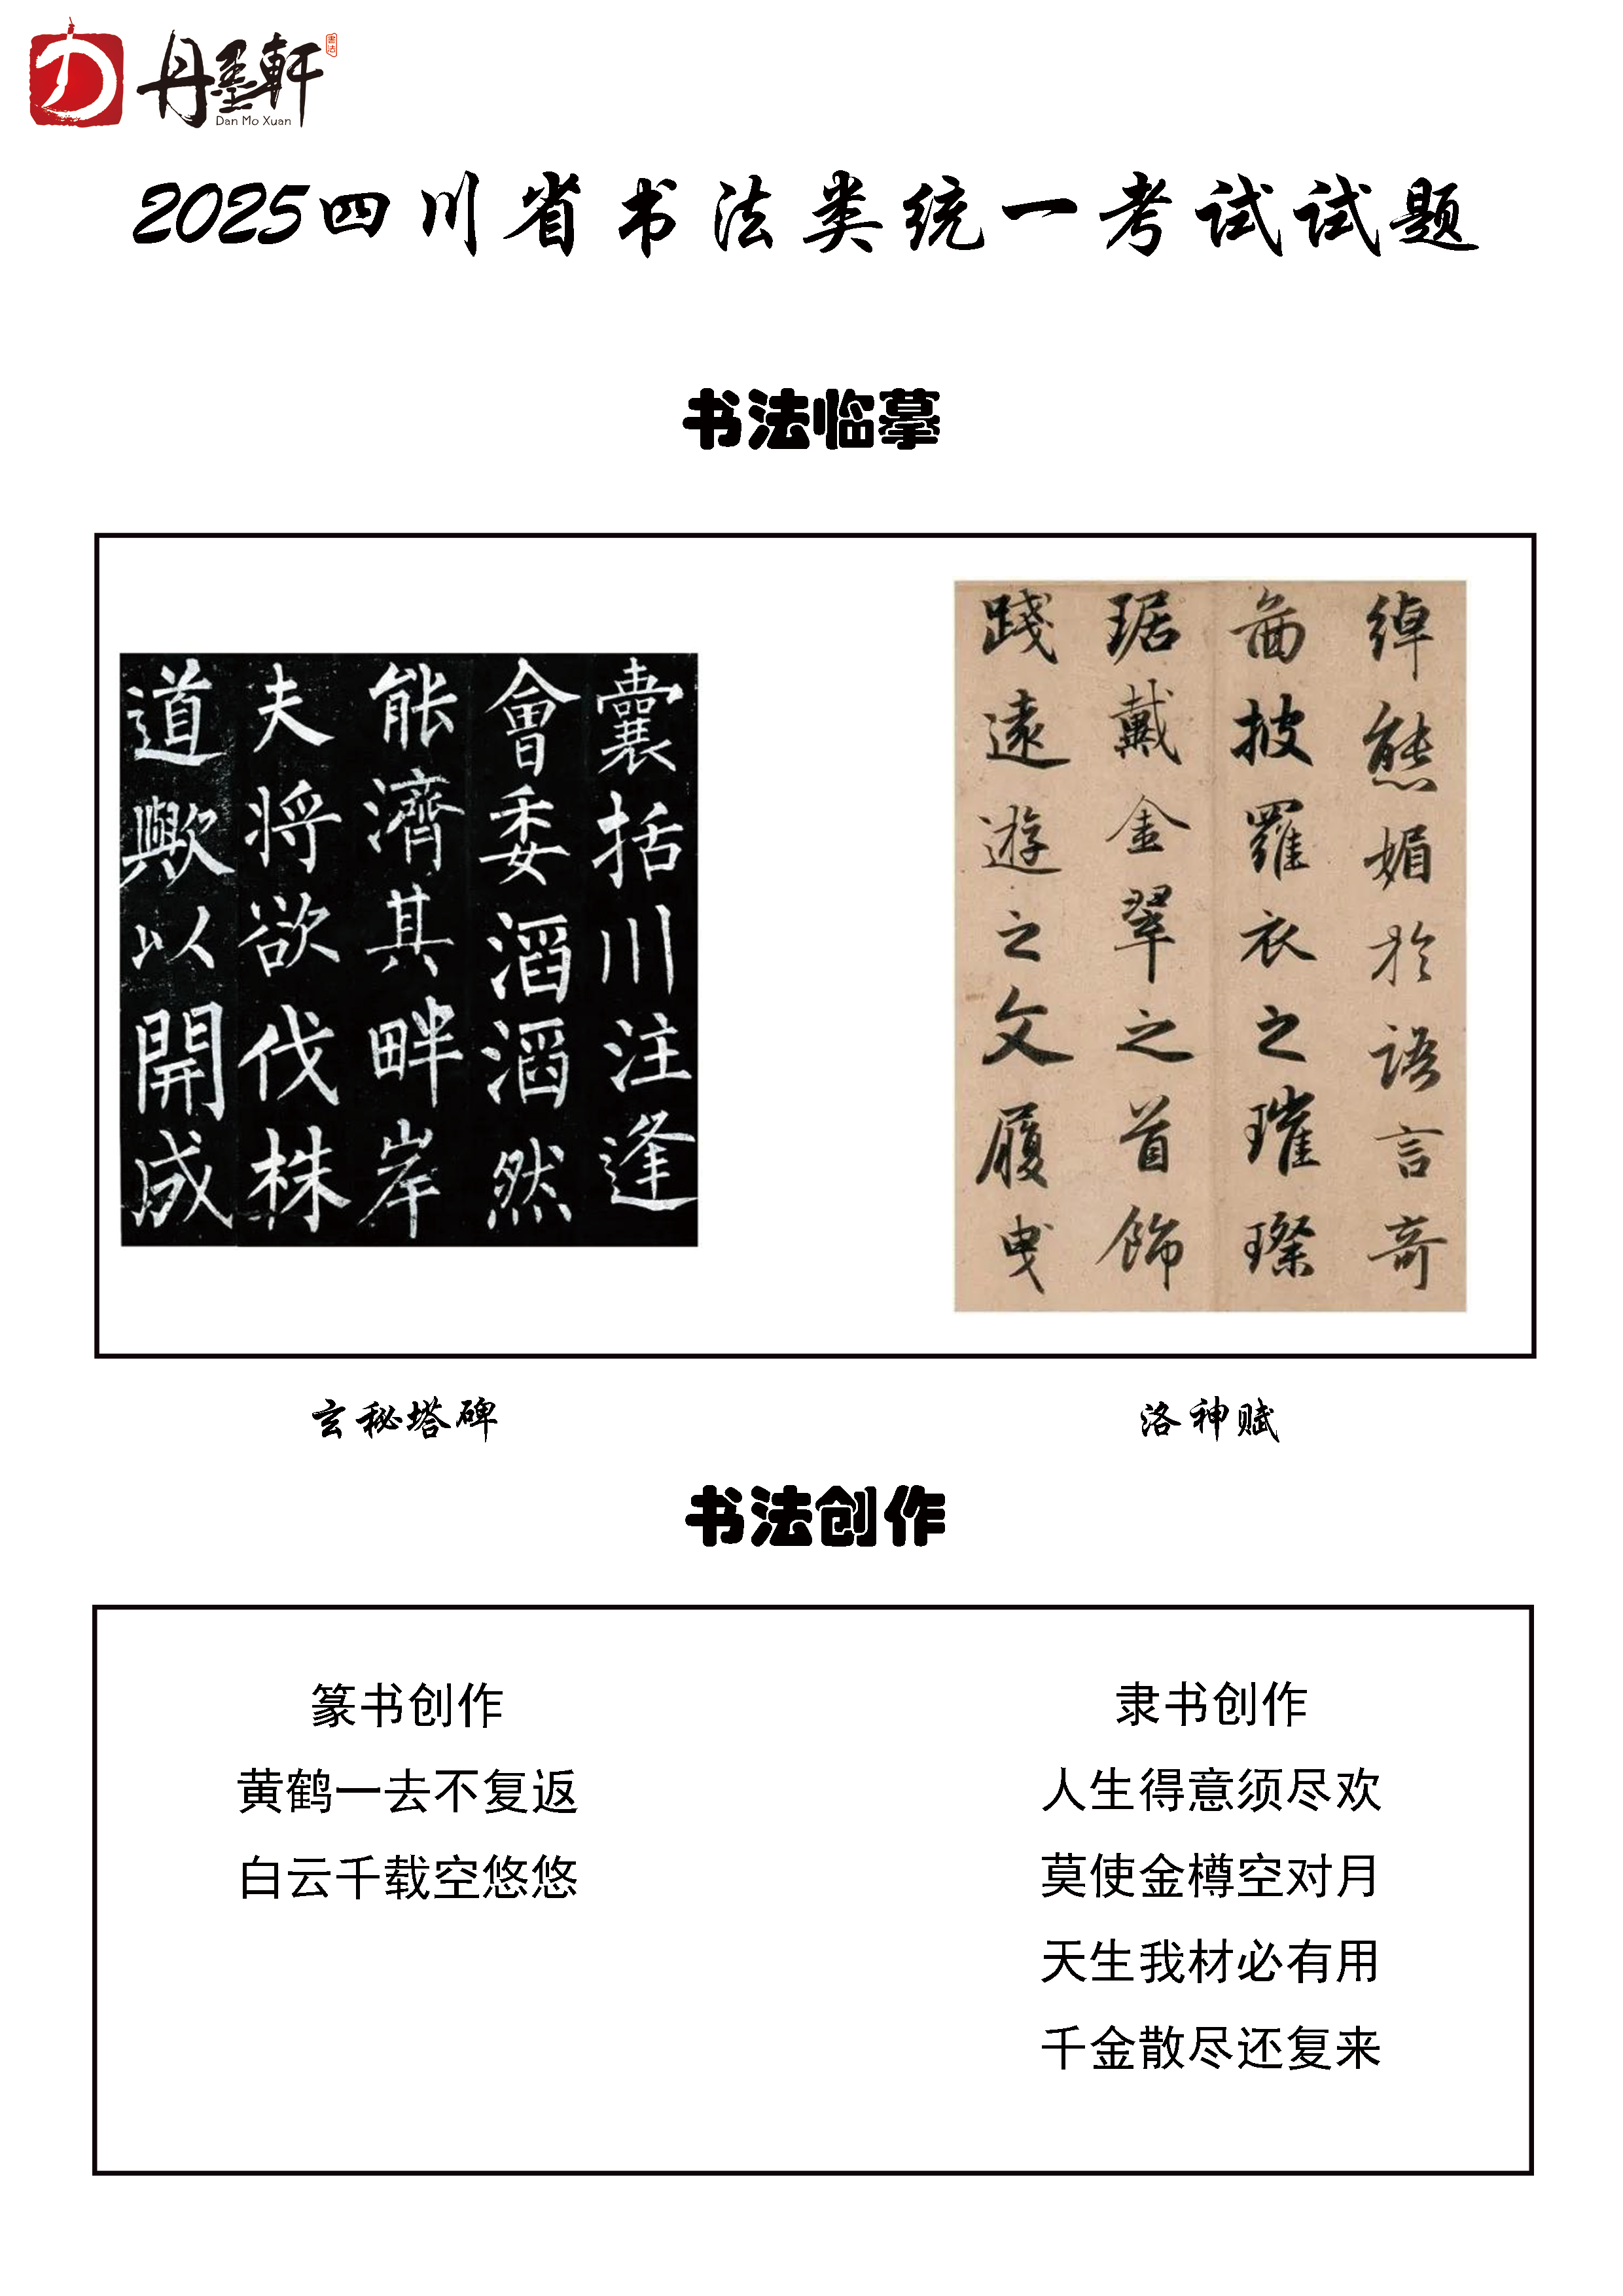 丹墨軒
書法
Dan Mo Xuan
2025四川省书法类统一考试试题
书法临摹
囊括川注逢
會委滔滔然
能濟其畔岸
夫將欲伐株
道歟以開成
綽態媚於語言奇
面披羅衣之璀璨
琚戴金翠之首飾
踐遠遊之文履曳
玄秘塔碑
洛神赋
书法创作
篆书创作
黄鹤一去不复返
白云千载空悠悠
隶书创作
人生得意须尽欢
莫使金樽空对月
天生我材必有用
千金散尽还复来